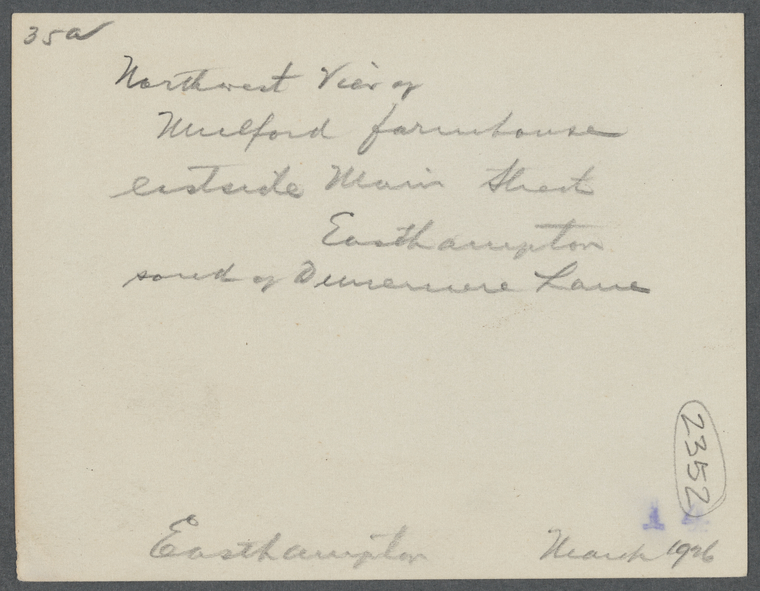 35a
Northwest View of
Mulford farmhouse
eastside Main Street
Easthampton
south of Dunemere Lane
2352
1
Easthampton March 1926